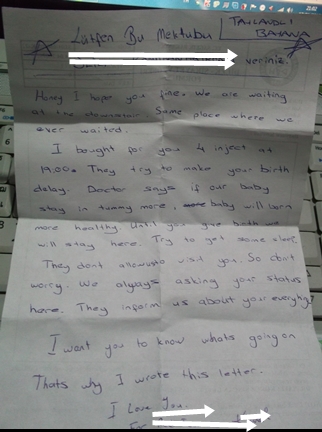 Lütfen Bu Mektubu
TAYLANDLI
BAYANA
veriniz.
Honey I hope you fine. We are waiting
at the downstair. Same place where we
ever waited.
I bought for you 4 inject at
19.00. They try to make your birth
delay. Doctor says if our baby
stay in tummy more, baby will born
more healthy. Until you give birth we
will stay here. Try to get some sleep.
They dont allow us to visit you. So dont
worry. We always asking your status
here. They inform us about your everything
I want you to know whats going on
Thats why I wrote this letter.
I Love you.